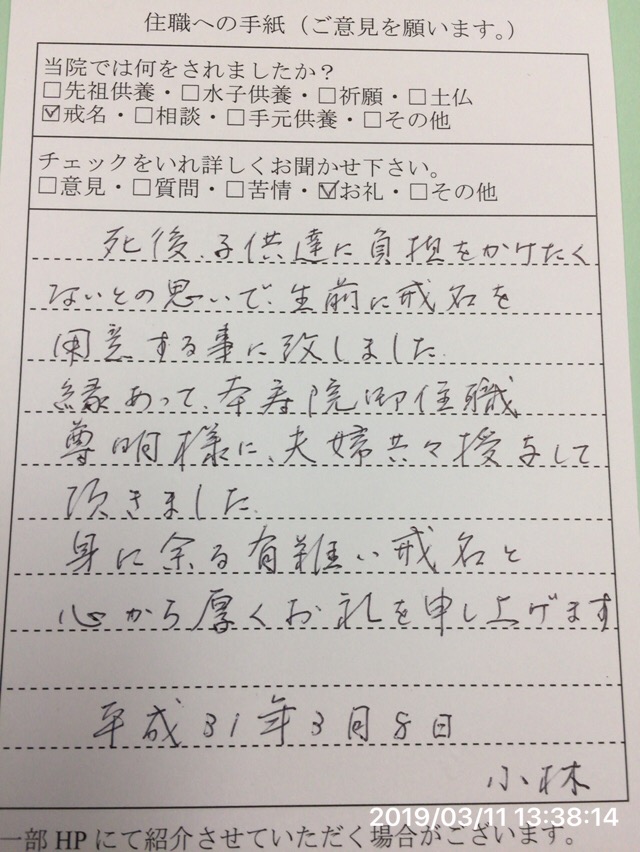 住職への手紙（ご意見を願います。）
当院では何をされましたか？
□先祖供養・□水子供養・□祈願・□土仏
☑戒名・□相談・□手元供養・□その他
チェックをいれ詳しくお聞かせ下さい。
□意見・□質問・□苦情・☑お礼・□その他
死後、子供達に負担をかけたく
ないとの思いで、生前に戒名を
用意する事に致しました。
縁あって、本寿院御住職
尊明様に、夫婦共々授与して
頂きました。
身に余る有難い戒名と
心から厚くお礼を申し上げます
平成31年3月8日
小林
2019/03/11 13:38:14
一部HPにて紹介させていただく場合がございます。